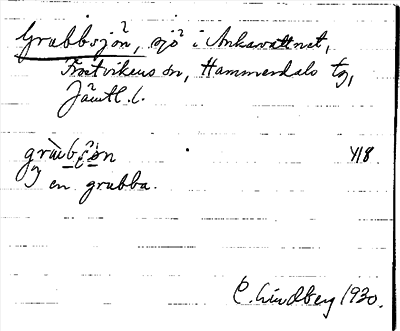 Grubbsjön, sjö i Ankarvattnet,
Frostvikens sn, Hammerdals tg,
Jämtl. l.
418
en grubba.
C. Lindberg 1930.